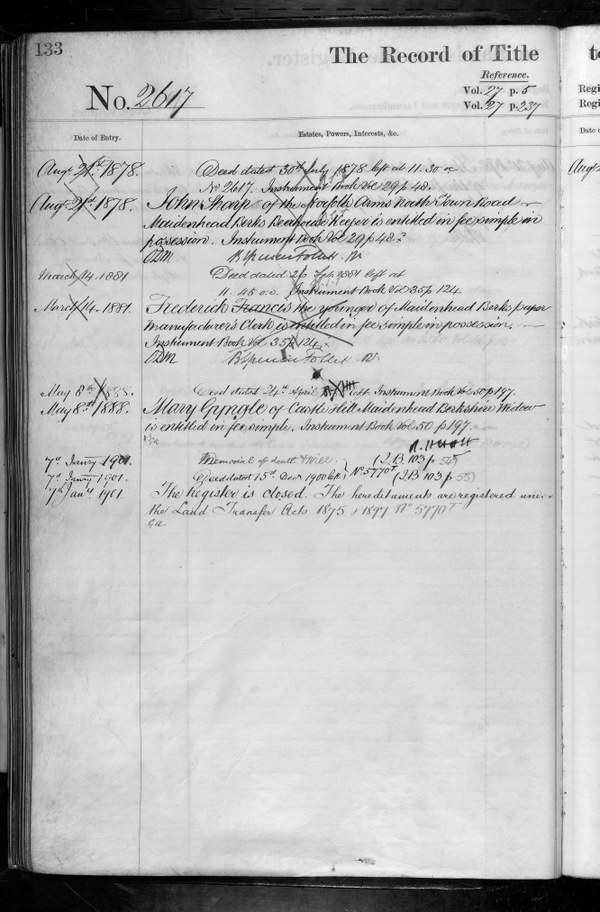 133
The Record of Title
Reference.
No. 2617
Vol. 27 p. 5
Vol. 27 p. 237
Date of Entry.
Estates, Powers, Interests, &c.
Augt 21st 1878. Deed dated 30th July 1878 left at 11.30 or
No 2617. Instrument Book Vol 29 p 48.
Augt 21st 1878. John Sharp of the Norfolk Arms North Town Road
Maidenhead Berks Beerhouse Keeper is entitled in fee simple in
possession. Instrument Book Vol 29 p 48.
March 14. 1881 Deed dated Feb 1881 left at
11.45 o.o. Instrument Book Vol 35 p 124
March 14. 1881. Frederick Francis the younger of Maidenhead Berks paper
manufacturer's Clerk is entitled in fee simple in possession.
Instrument Book Vol 35 p 124.
May 8th 1888. Deed dated 24th April left Instrument Book Vol 50 p 197.
May 8th 1888. Mary Gyngle of Castle Hill Maidenhead Berkshire Widow
is entitled in fee simple. Instrument Book Vol. 50 p 197.
7th Janry 1901. Memorial of death & Will (I.B 103 p 55)
7th Janry 1901. Deed dated 15th Decr 1900 No 5770T (I.B 103 p 55)
7th Jany 1901 The Register is closed. The hereditaments are registered under
the Land Transfer Acts 1875 & 1897 No 5770T